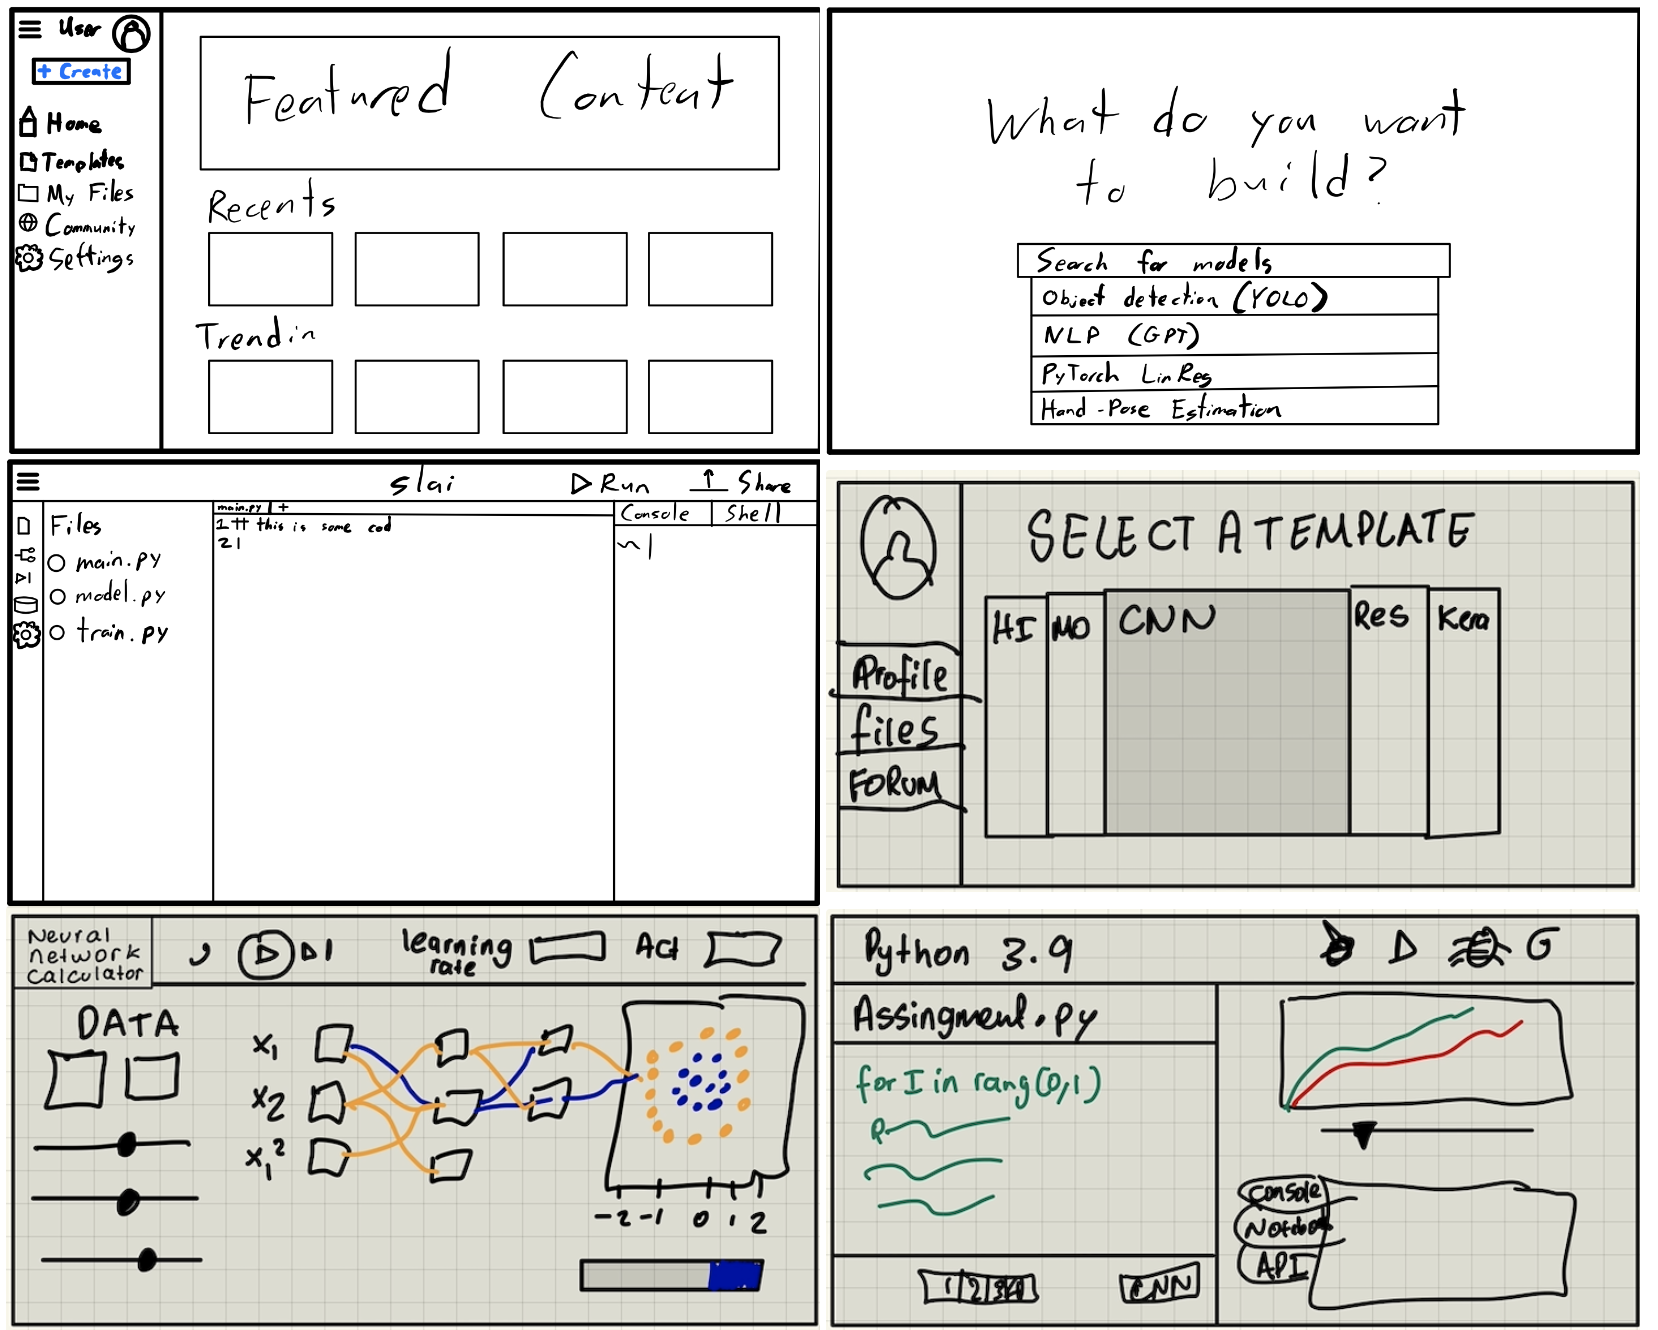 User
+ Create
Home
Templates
My Files
Community
Settings
Featured Content
Recents
Trendin
What do you want
to build?
Search for models
Object detection (YOLO)
NLP (GPT)
PyTorch LinReg
Hand-Pose Estimation
slai
Run
Share
Files
main.py
model.py
train.py
main.py +
1 # this is some cod
2
Console
Shell
~
SELECT A TEMPLATE
Profile
files
FORUM
HI
MO
CNN
Res
Kera
Neural
network
calculator
learning
rate
Act
DATA
x₁
x₂
x₁²
-2 -1 0 1 2
Python 3.9
G
Assingment.py
for I in rang(0,1)
1 2 3 4
CNN
Console
API